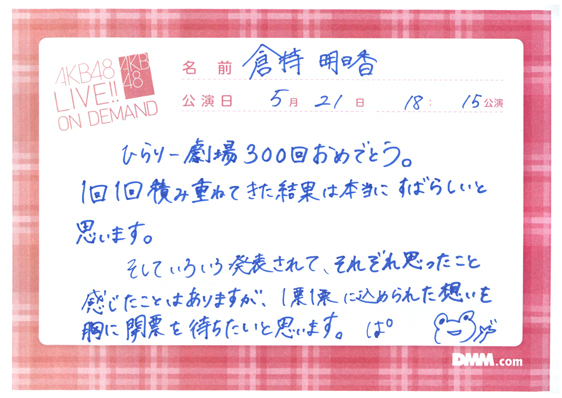 AKB48
LIVE!!
ON DEMAND
AKB
48
名 前 倉持 明日香
公演日 5月 21日 18: 15公演
ひらりー劇場300回おめでとう。
1回1回積み重ねてきた結果は本当にすばらしいと
思います。
そしていろいろ発表されて、それぞれ思ったこと
感じたことはありますが、1票1票に込められた想いを
胸に開票を待ちたいと思います。 ぱ°
DMM.com